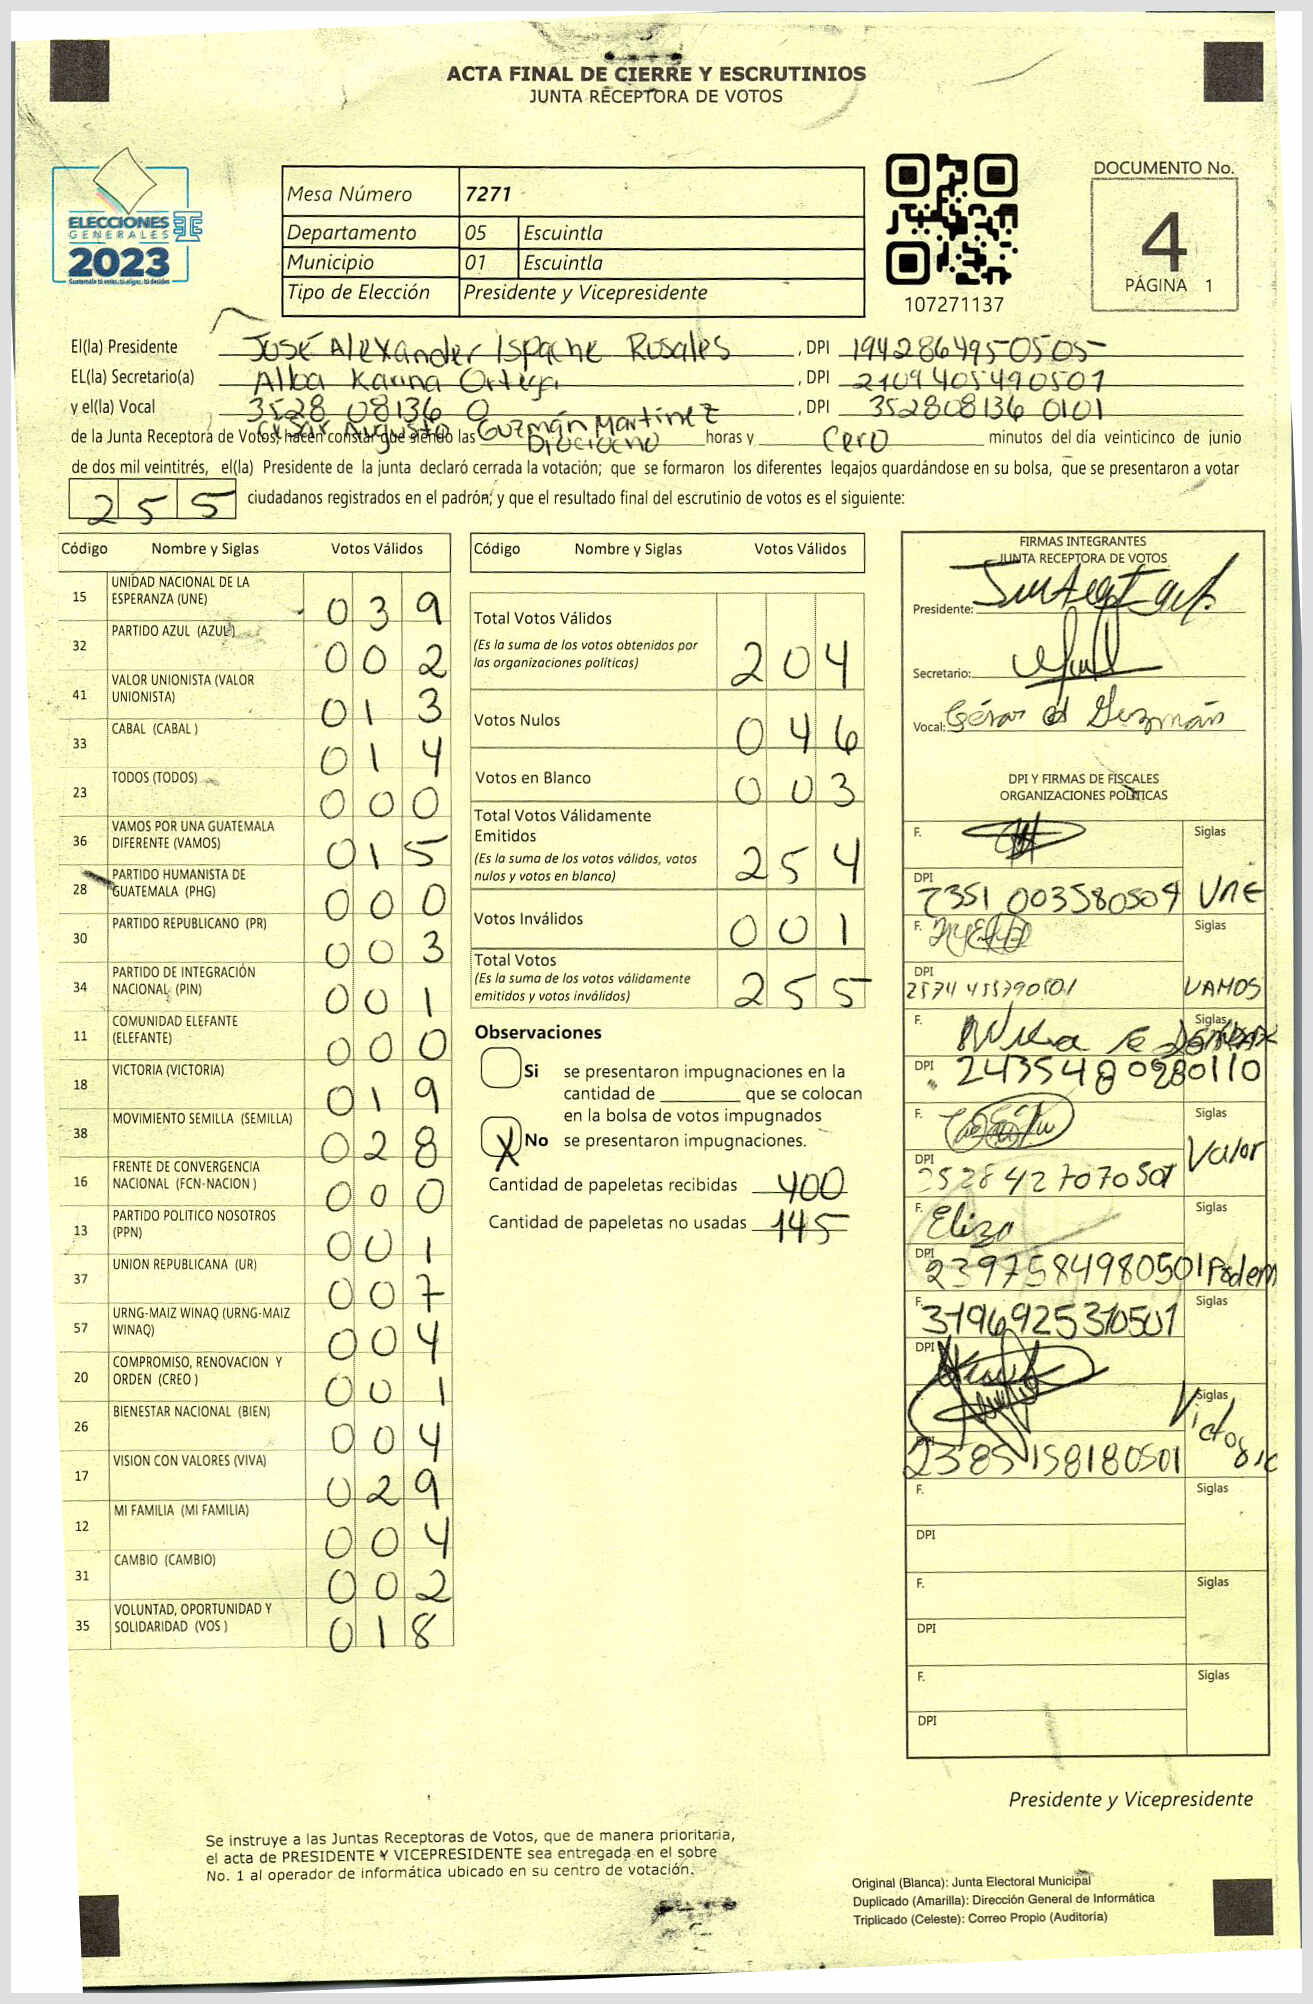 ACTA FINAL DE CIERRE Y ESCRUTINIOS
JUNTA RECEPTORA DE VOTOS
ELECCIONES
GENERALES
2023
Guatemala tú votas, tú eliges, tú decides
Mesa Número 7271
Departamento 05 Escuintla
Municipio 01 Escuintla
Tipo de Elección Presidente y Vicepresidente
107271137
DOCUMENTO No.
4
PÁGINA 1
El(la) Presidente José Alexander Ispache Rosales , DPI 1942864950505
EL(la) Secretario(a) Alba Karina Ortega , DPI 2109405490501
y el(la) Vocal 3528 08136 0 , DPI 352808136 0101
César Augusto Guzmán Martínez
de la Junta Receptora de Votos, hacen constar que siendo las Dieciocho horas y Cero minutos del día veinticinco de junio
de dos mil veintitrés, el(la) Presidente de la junta declaró cerrada la votación; que se formaron los diferentes legajos guardándose en su bolsa, que se presentaron a votar
255 ciudadanos registrados en el padrón, y que el resultado final del escrutinio de votos es el siguiente:
Código Nombre y Siglas Votos Válidos
15 UNIDAD NACIONAL DE LA ESPERANZA (UNE) 039
32 PARTIDO AZUL (AZUL) 002
41 VALOR UNIONISTA (VALOR UNIONISTA) 013
33 CABAL (CABAL ) 014
23 TODOS (TODOS) 000
36 VAMOS POR UNA GUATEMALA DIFERENTE (VAMOS) 015
28 PARTIDO HUMANISTA DE GUATEMALA (PHG) 000
30 PARTIDO REPUBLICANO (PR) 003
34 PARTIDO DE INTEGRACIÓN NACIONAL (PIN) 001
11 COMUNIDAD ELEFANTE (ELEFANTE) 000
18 VICTORIA (VICTORIA) 019
38 MOVIMIENTO SEMILLA (SEMILLA) 028
16 FRENTE DE CONVERGENCIA NACIONAL (FCN-NACION ) 000
13 PARTIDO POLITICO NOSOTROS (PPN) 001
37 UNION REPUBLICANA (UR) 007
57 URNG-MAIZ WINAQ (URNG-MAIZ WINAQ) 004
20 COMPROMISO, RENOVACION Y ORDEN (CREO ) 001
26 BIENESTAR NACIONAL (BIEN) 004
17 VISION CON VALORES (VIVA) 029
12 MI FAMILIA (MI FAMILIA) 004
31 CAMBIO (CAMBIO) 002
35 VOLUNTAD, OPORTUNIDAD Y SOLIDARIDAD (VOS ) 018
Código Nombre y Siglas Votos Válidos
Total Votos Válidos 204
(Es la suma de los votos obtenidos por
las organizaciones políticas)
Votos Nulos 046
Votos en Blanco 003
Total Votos Válidamente
Emitidos 254
(Es la suma de los votos válidos, votos
nulos y votos en blanco)
Votos Inválidos 001
Total Votos 255
(Es la suma de los votos válidamente
emitidos y votos inválidos)
Observaciones
Si se presentaron impugnaciones en la
cantidad de ________ que se colocan
en la bolsa de votos impugnados
X No se presentaron impugnaciones.
Cantidad de papeletas recibidas 400
Cantidad de papeletas no usadas 145
FIRMAS INTEGRANTES
JUNTA RECEPTORA DE VOTOS
Presidente:
Secretario:
Vocal: César A Guzmán
DPI Y FIRMAS DE FISCALES
ORGANIZACIONES POLÍTICAS
F. Siglas
DPI 2351 003580504 UNE
F. Siglas
DPI VAMOS
F. Siglas
DPI 2435480280110
F. Siglas
DPI 2528427070501 Valor
F. Eliza Siglas
DPI 2397584980501 Podem
F. 3196925310501 Siglas
DPI
Siglas Victoria
DPI 2385158180501
F. Siglas
DPI
F. Siglas
DPI
F. Siglas
DPI
Presidente y Vicepresidente
Se instruye a las Juntas Receptoras de Votos, que de manera prioritaria,
el acta de PRESIDENTE Y VICEPRESIDENTE sea entregada en el sobre
No. 1 al operador de informática ubicado en su centro de votación.
Original (Blanca): Junta Electoral Municipal
Duplicado (Amarilla): Dirección General de Informática
Triplicado (Celeste): Correo Propio (Auditoría)